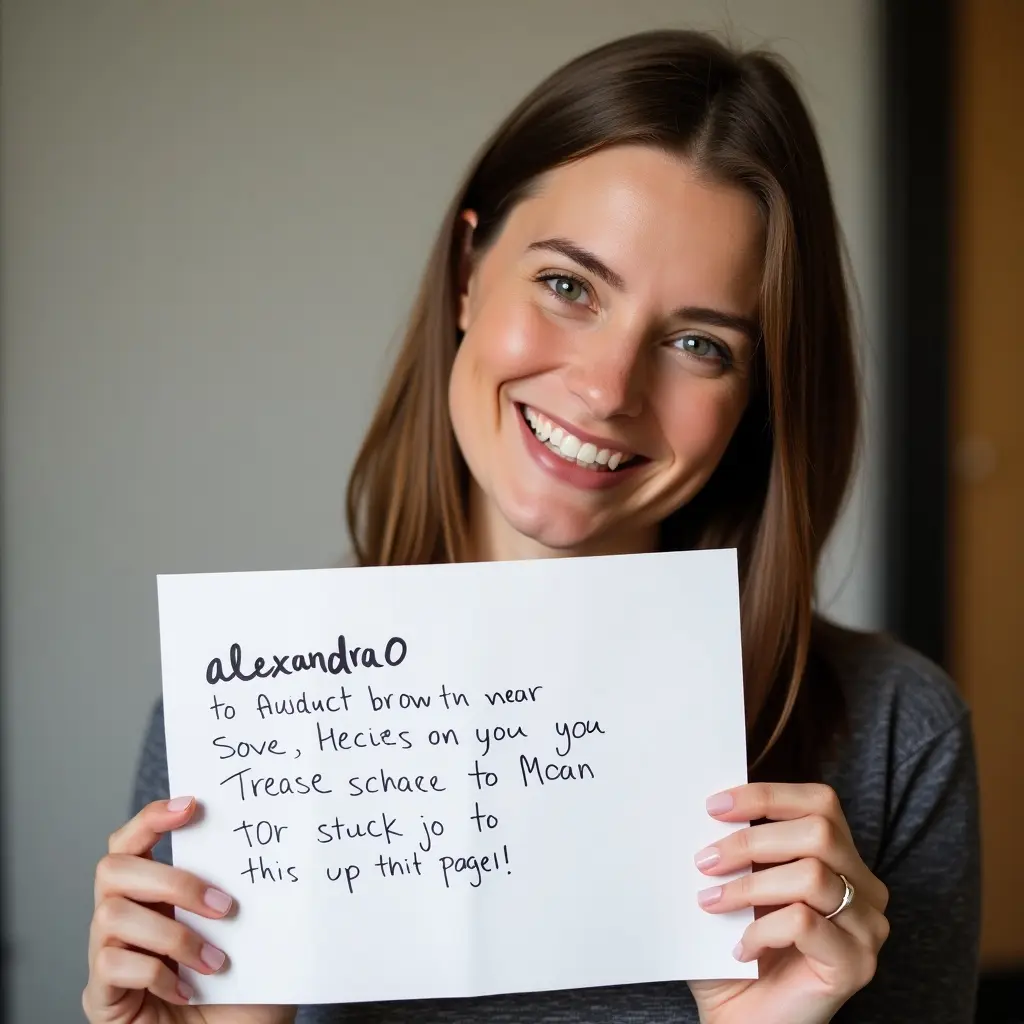 alexandraO
to Awduct brow tn near
Sove, Hecies on you you
Trease schace to Mcan
tOr stuck jo to
this up thit pagel!